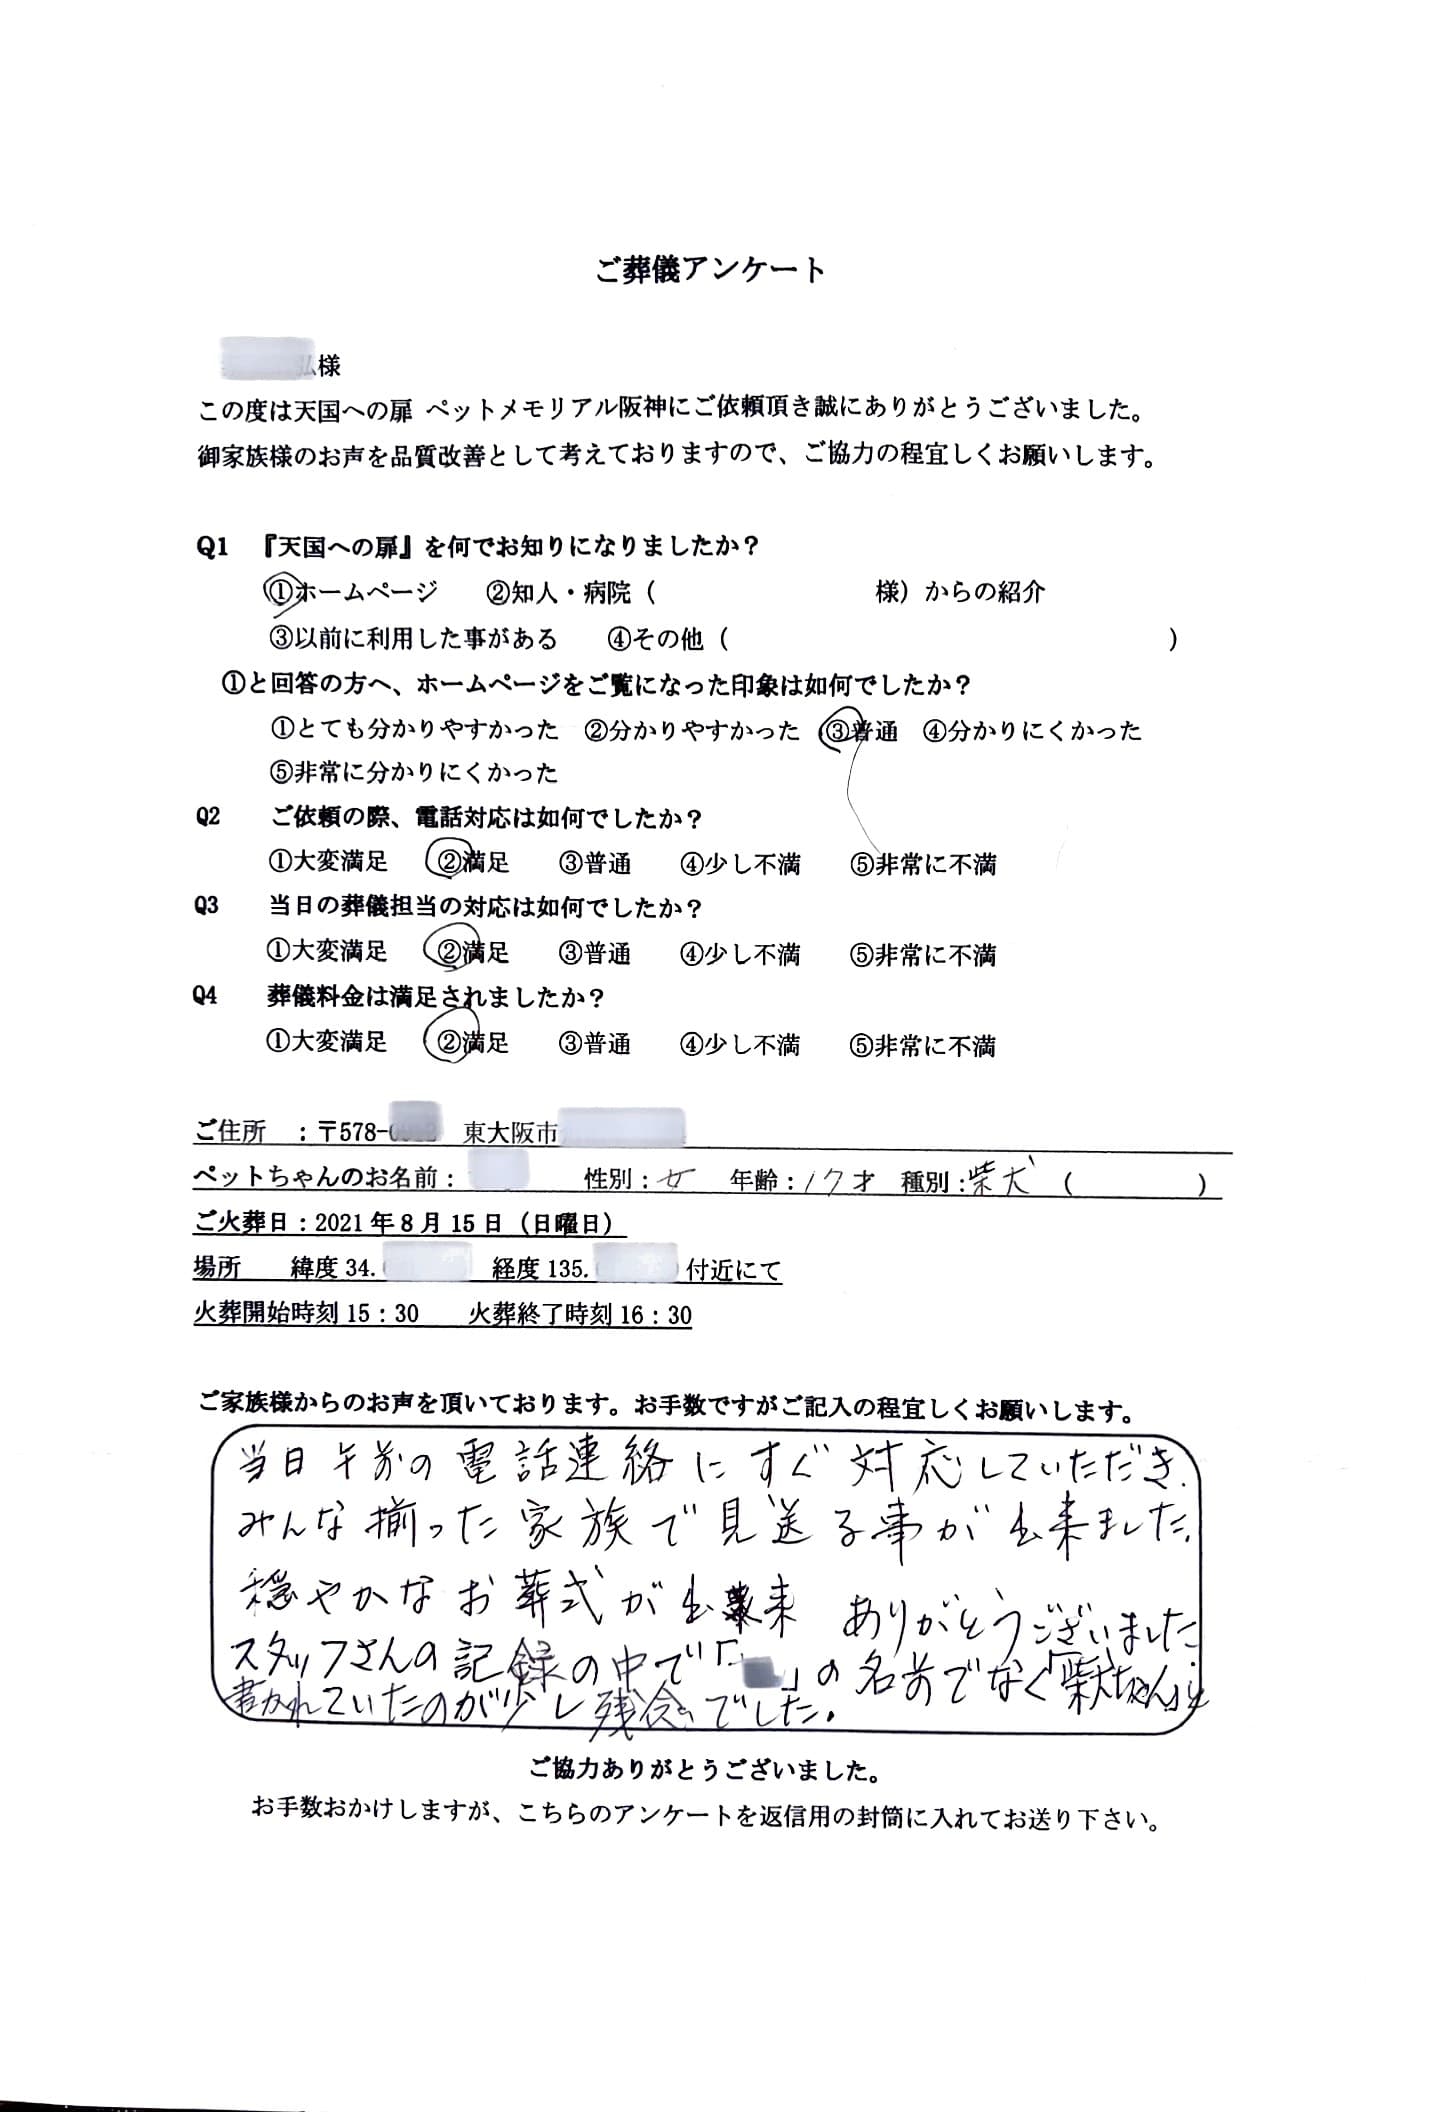 ご葬儀アンケート
様
この度は天国への扉 ペットメモリアル阪神にご依頼頂き誠にありがとうございました。
御家族様のお声を品質改善として考えておりますので、ご協力の程宜しくお願いします。
Q1 『天国への扉』を何でお知りになりましたか?
①ホームページ ②知人・病院( 様)からの紹介
③以前に利用した事がある ④その他( )
①と回答の方へ、ホームページをご覧になった印象は如何でしたか?
①とても分かりやすかった ②分かりやすかった ③普通 ④分かりにくかった
⑤非常に分かりにくかった
Q2 ご依頼の際、電話対応は如何でしたか?
①大変満足 ②満足 ③普通 ④少し不満 ⑤非常に不満
Q3 当日の葬儀担当の対応は如何でしたか?
①大変満足 ②満足 ③普通 ④少し不満 ⑤非常に不満
Q4 葬儀料金は満足されましたか?
①大変満足 ②満足 ③普通 ④少し不満 ⑤非常に不満
ご住所 :〒578- 東大阪市
ペットちゃんのお名前: 性別:女 年齢:17才 種別:柴犬 ( )
ご火葬日:2021年8月15日(日曜日)
場所 緯度34. 経度135. 付近にて
火葬開始時刻15:30 火葬終了時刻16:30
ご家族様からのお声を頂いております。お手数ですがご記入の程宜しくお願いします。
当日午前の電話連絡にすぐ対応していただき、
みんな揃った家族で見送る事が出来ました。
穏やかなお葬式が出来 ありがとうございました
スタッフさんの記録の中で「 」の名前でなく「柴犬ちゃん」と
書かれていたのが少し残念でした。
ご協力ありがとうございました。
お手数おかけしますが、こちらのアンケートを返信用の封筒に入れてお送り下さい。